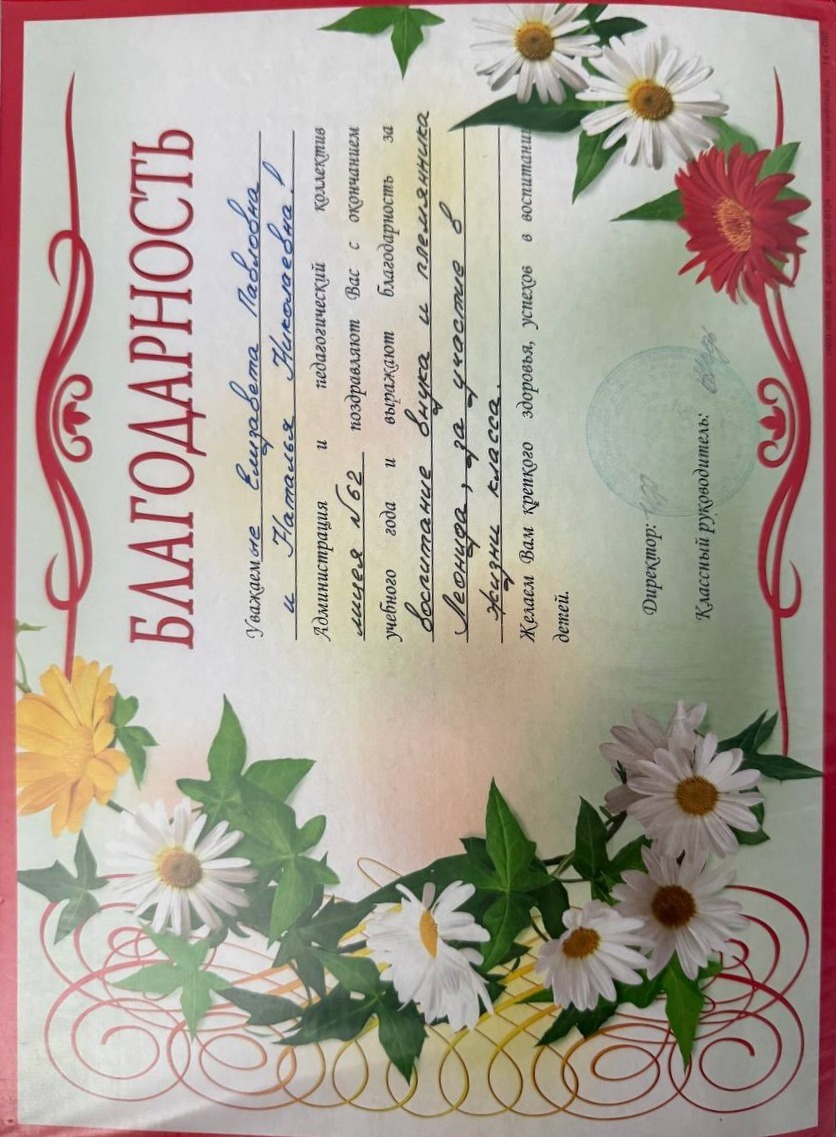 БЛАГОДАРНОСТЬ
Уважаемые Елизавета Павловна
и Наталья Николаевна!
Администрация и педагогический коллектив
лицея №62 поздравляют Вас с окончанием
учебного года и выражают благодарность за
воспитание внука и племянника
Леонида, за участие в
жизни класса.
Желаем Вам крепкого здоровья, успехов в воспитании
детей.
Директор:
Классный руководитель: